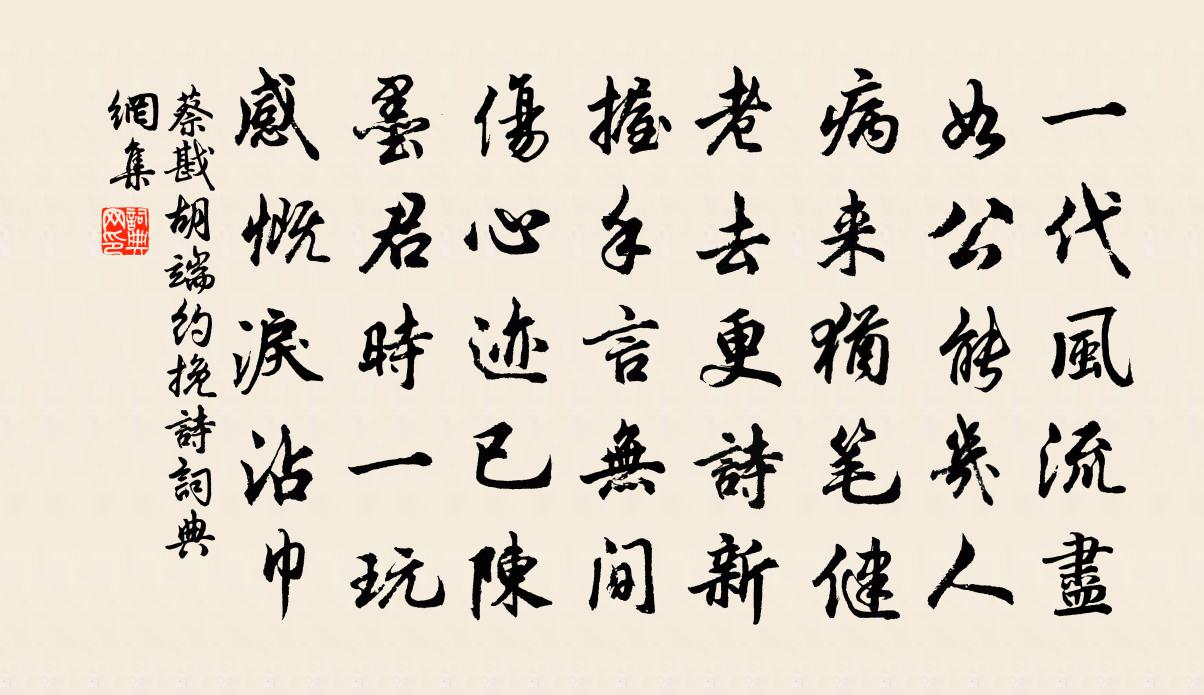 一代風流盡
如公能幾人
病来猶笔健
老去更詩新
握手言無間
傷心迹已陳
墨君時一玩
感慨淚沾巾
蔡戡胡端约挽詩詞典
網集
詞典
网印